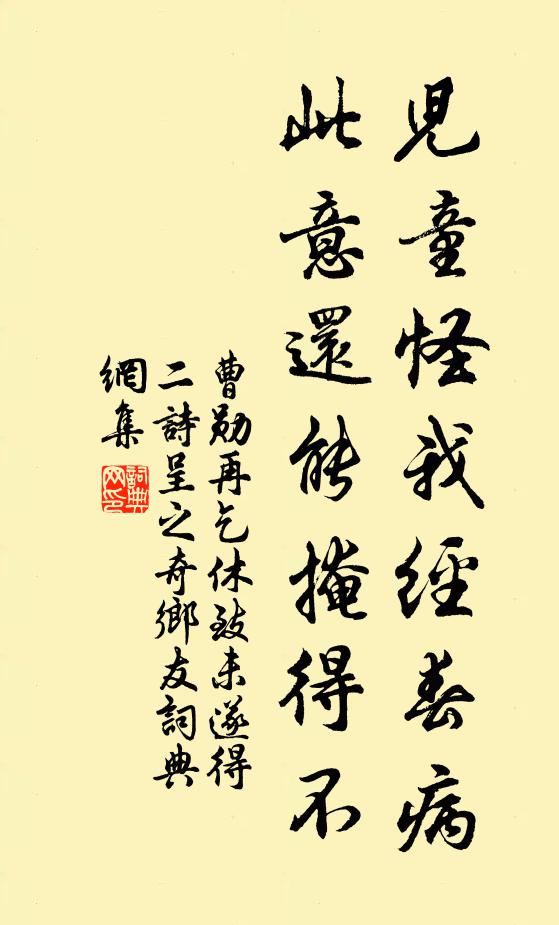 兒童怪我經春病
此意還能掩得不
曹勛再乞休致未遂得
二詩呈之奇鄉友詞典
網集
詞典網印